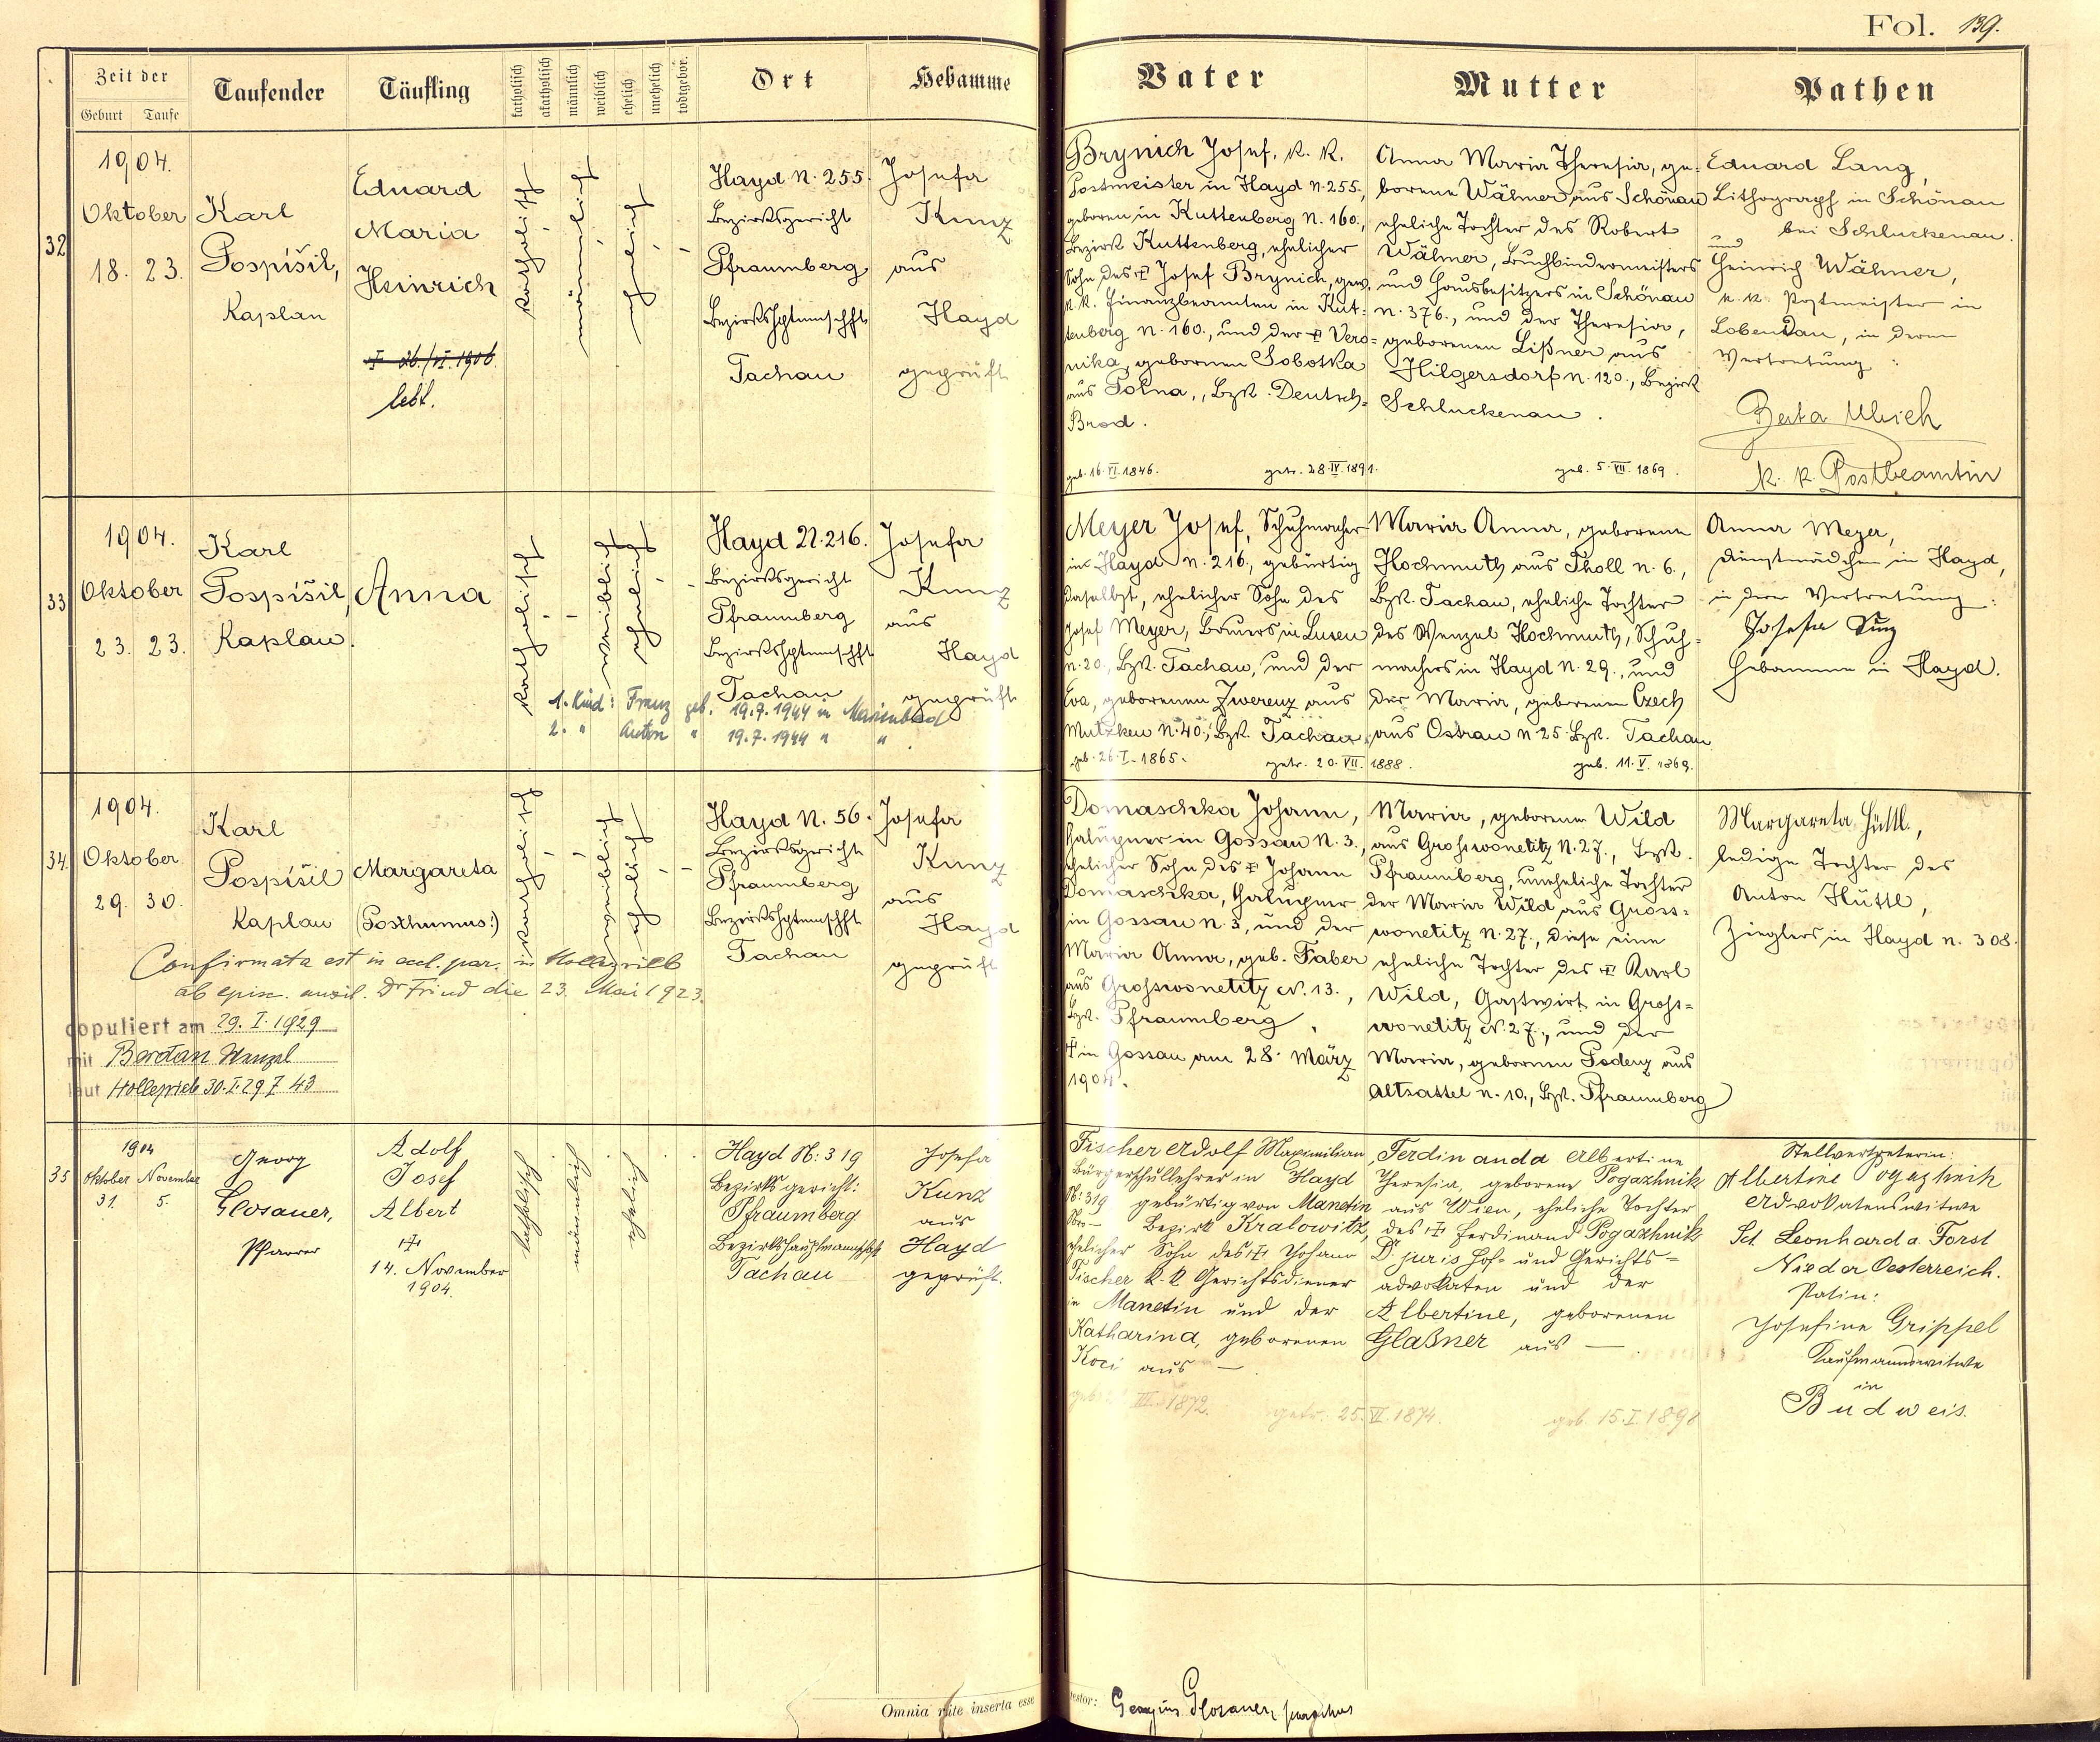 Fol. 139.
Zeit der
Geburt Taufe
Taufender
Täufling
katholisch
akatholisch
männlich
weiblich
ehelich
unehelich
todtgebor.
Ort
Hebamme
Vater
Mutter
Pathen
32
1904.
Oktober
18. 23.
Karl
Pospíšil,
Kaplan
Eduard
Maria
Heinrich
✝ 26./VI. 1906.
lebt.
katholisch
-
männlich
-
ehelich
-
-
Hayd N. 255.
Bezirksgericht
Pfraumberg
Bezirkshptmschft
Tachau
Josefa
Kunz
aus
Hayd
geprüft
Brynich Josef, k. k.
Postmeister in Hayd N. 255.,
geboren in Kuttenberg N. 160.,
Bezirk Kuttenberg, ehelicher
Sohn des ✝ Josef Brynich, gew.
k. k. Finanzbeamten in Kut-
tenberg N. 160., und der ✝ Vero-
nika, gebornen Sobotka
aus Polna, Bzk. Deutsch-
Brod.
geb. 16. VI. 1846.
getr. 28. IV. 1891.
Anna Maria Theresia, ge-
borene Wähner aus Schönau
eheliche Tochter des Robert
Wähner, Buchbindermeisters
und Hausbesitzers in Schönau
N. 376., und der Theresia,
geborenen Lißner aus
Hilgersdorf N. 120., Bezirk
Schluckenau.
geb. 5. VII. 1869.
Eduard Lang,
Lithograph in Schönau
bei Schluckenau.
und
Heinrich Wähner,
k. k. Postmeister in
Lobendau, in deren
Vertretung:
Berta Ulrich
k. k. Postbeamtin
33
1904.
Oktober
23. 23.
Karl
Pospíšil,
Kaplan.
Anna
katholisch
-
-
weiblich
ehelich
-
-
Hayd N. 216.
Bezirksgericht
Pfraumberg
Bezirkshptmschft
Tachau
Josefa
Kunz
aus
Hayd
geprüft
1. Kind: Franz geb. 19.7.1944 in Marienbad
2. " Anton " 19.7.1944 " "
Meyer Josef, Schuhmacher
in Hayd N. 216., gebürtig
daselbst, ehelicher Sohn des
Josef Meyer, Bauers in Lusen
N. 20., Bzk. Tachau, und der
Eva, geborenen Zwerenz aus
Mutzken N. 40., Bzk. Tachau
geb. 26. I. 1865.
getr. 20. VII. 1888.
Maria Anna, geborene
Hochmuth aus Tholl N. 6.,
Bzk. Tachau, eheliche Tochter
des Wenzel Hochmuth, Schuh-
machers in Hayd N. 29., und
der Maria, geborenen Czech
aus Ostrau N 25. Bzk. Tachau
geb. 11. V. 1869.
Anna Meyer,
Dienstmädchen in Hayd,
in deren Vertretung:
Josefa Kunz
Hebamme in Hayd.
34.
1904.
Oktober
29. 30.
Karl
Pospíšil
Kaplan
Margareta
(Posthumus!)
katholisch
-
-
weiblich
ehelich
-
-
Hayd N. 56.
Bezirksgericht
Pfraumberg
Bezirkshptmschft
Tachau
Josefa
Kunz
aus
Hayd
geprüft
Confirmata est in eccl. par. in Hollezrieb
ab episc. auxil. Dr Frind die 23. Mai 1923.
copuliert am 29. I. 1929
mit Bordan Wenzel
laut Hollezrieb 30. I. 29 Z 43
Domaschka Johann,
Chalupner in Gossau N. 3.,
ehelicher Sohn des ✝ Johann
Domaschka, Chalupner
in Gossau N. 3, und der
Maria Anna, geb. Faber
aus Grosswonetitz N. 13.,
Bzk. Pfraumberg,
✝ in Gossau am 28. März
1904.
Maria, geborene Wild
aus Grosswonetitz N. 27., Bzk.
Pfraumberg, uneheliche Tochter
der Maria Wild aus Gross-
wonetitz N. 27., diese eine
eheliche Tochter des ✝ Karl
Wild, Gastwirt in Gross-
wonetitz N. 27., und der
Maria, gebornen Podenz aus
Altsattel N. 10., Bzk. Pfraumberg
Margareta Hüttl,
ledige Tochter des
Anton Hüttl,
Zieglers in Hayd N. 308.
35
1904
Oktober November
31. 5.
Georg
Glosauer,
Pfarrer
Adolf
Josef
Albert
✝
14. November
1904.
katholisch
männlich
ehelich
Hayd N: 319
Bezirksgericht:
Pfraumberg
Bezirkshauptmannschft
Tachau
Josefa
Kunz
aus
Hayd
geprüft.
Fischer Adolf Maximilian
Bürgerschullehrer in Hayd
N: 319 gebürtig von Manetin
Nr: — Bezirk Kralowitz,
ehelicher Sohn des ✝ Johann
Fischer k. k. Gerichtsdiener
in Manetin und der
Katharina, geborenen
Koci aus —.
III. 1872.
getr. 25. VI. 1874.
Ferdinanda Albertine
Theresia, geborene Pogazhnik
aus Wien, eheliche Tochter
des ✝ Ferdinand Pogazhnik
Dr. juris Hof- und Gerichts-
advokaten und der
Albertine, geborenen
Glaßner aus —.
geb. 15. I. 1898
Stellvertreterin:
Albertine Pogazhnik
Advokatenswitwe
Sct. Leonhard a. Forst
Nieder Oesterreich.
Patin:
Josefine Grippel
Kaufmannswitwe
in
Budweis.
Omnia rite inserta esse testor: Georgius Glosauer, parochus